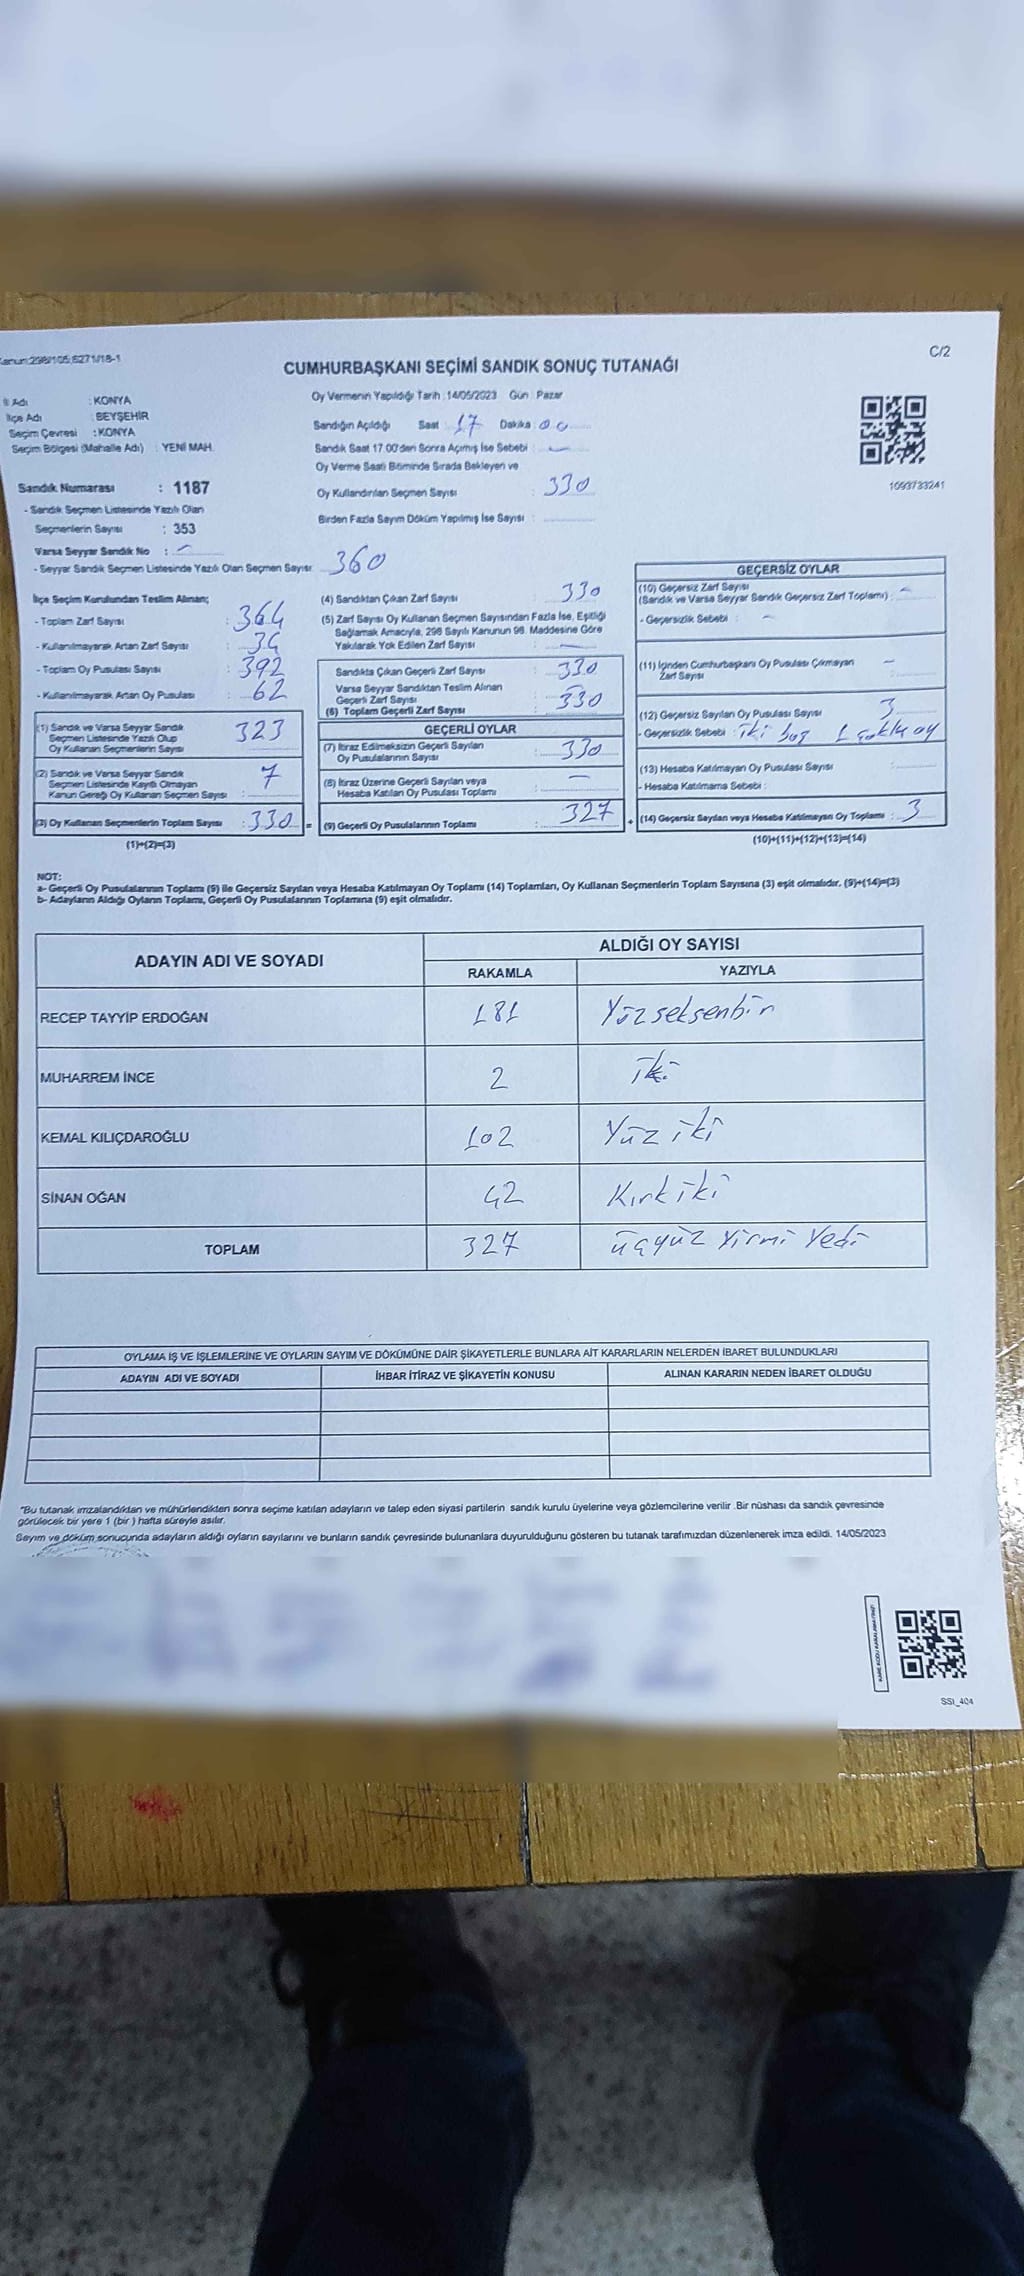 Kanun:298/105;6271/18-1
C/2
CUMHURBAŞKANI SEÇİMİ SANDIK SONUÇ TUTANAĞI
İl Adı : KONYA
İlçe Adı : BEYŞEHİR
Seçim Çevresi : KONYA
Seçim Bölgesi (Mahalle Adı) : YENİ MAH.
Sandık Numarası : 1187
- Sandık Seçmen Listesinde Yazılı Olan
Seçmenlerin Sayısı : 353
Varsa Seyyar Sandık No : -
- Seyyar Sandık Seçmen Listesinde Yazılı Olan Seçmen Sayısı 360
Oy Vermenin Yapıldığı Tarih : 14/05/2023 Gün : Pazar
Sandığın Açıldığı Saat : 17 Dakika : 00
Sandık Saat 17.00'den Sonra Açılmış İse Sebebi : -
Oy Verme Saati Bitiminde Sırada Bekleyen ve
Oy Kullandırılan Seçmen Sayısı : 330
Birden Fazla Sayım Döküm Yapılmış İse Sayısı :
1093733241
İlçe Seçim Kurulundan Teslim Alınan;
- Toplam Zarf Sayısı : 364
- Kullanılmayarak Artan Zarf Sayısı : 34
- Toplam Oy Pusulası Sayısı : 392
- Kullanılmayarak Artan Oy Pusulası : 62
(1) Sandık ve Varsa Seyyar Sandık
Seçmen Listesinde Yazılı Olup
Oy Kullanan Seçmenlerin Sayısı 323
(2) Sandık ve Varsa Seyyar Sandık
Seçmen Listesinde Kayıtlı Olmayan
Kanun Gereği Oy Kullanan Seçmen Sayısı : 7
(3) Oy Kullanan Seçmenlerin Toplam Sayısı : 330 =
(1)+(2)=(3)
(4) Sandıktan Çıkan Zarf Sayısı : 330
(5) Zarf Sayısı Oy Kullanan Seçmen Sayısından Fazla İse, Eşitliği
Sağlamak Amacıyla, 298 Sayılı Kanunun 98. Maddesine Göre
Yakılarak Yok Edilen Zarf Sayısı : -
Sandıkta Çıkan Geçerli Zarf Sayısı : 330
Varsa Seyyar Sandıktan Teslim Alınan
Geçerli Zarf Sayısı : -
(6) Toplam Geçerli Zarf Sayısı : 330
GEÇERLİ OYLAR
(7) İtiraz Edilmeksizin Geçerli Sayılan
Oy Pusulalarının Sayısı : 330
(8) İtiraz Üzerine Geçerli Sayılan veya
Hesaba Katılan Oy Pusulası Toplamı : -
(9) Geçerli Oy Pusulalarının Toplamı : 327 +
GEÇERSİZ OYLAR
(10) Geçersiz Zarf Sayısı
(Sandık ve Varsa Seyyar Sandık Geçersiz Zarf Toplamı) : -
- Geçersizlik Sebebi : -
(11) İçinden Cumhurbaşkanı Oy Pusulası Çıkmayan
Zarf Sayısı : -
(12) Geçersiz Sayılan Oy Pusulası Sayısı : 3
- Geçersizlik Sebebi : iki boş 1 çoklu oy
(13) Hesaba Katılmayan Oy Pusulası Sayısı :
- Hesaba Katılmama Sebebi :
(14) Geçersiz Sayılan veya Hesaba Katılmayan Oy Toplamı : 3
(10)+(11)+(12)+(13)=(14)
NOT:
a- Geçerli Oy Pusulalarının Toplamı (9) ile Geçersiz Sayılan veya Hesaba Katılmayan Oy Toplamı (14) Toplamları, Oy Kullanan Seçmenlerin Toplam Sayısına (3) eşit olmalıdır. (9)+(14)=(3)
b- Adayların Aldığı Oyların Toplamı, Geçerli Oy Pusulalarının Toplamına (9) eşit olmalıdır.
ADAYIN ADI VE SOYADI
ALDIĞI OY SAYISI
RAKAMLA YAZIYLA
RECEP TAYYİP ERDOĞAN 181 Yüzseksenbir
MUHARREM İNCE 2 iki
KEMAL KILIÇDAROĞLU 102 Yüz iki
SİNAN OĞAN 42 Kırk iki
TOPLAM 327 üçyüz Yirmi Yedi
OYLAMA İŞ VE İŞLEMLERİNE VE OYLARIN SAYIM VE DÖKÜMÜNE DAİR ŞİKAYETLERLE BUNLARA AİT KARARLARIN NELERDEN İBARET BULUNDUKLARI
ADAYIN ADI VE SOYADI İHBAR İTİRAZ VE ŞİKAYETİN KONUSU ALINAN KARARIN NEDEN İBARET OLDUĞU
"Bu tutanak imzalandıktan ve mühürlendikten sonra seçime katılan adayların ve talep eden siyasi partilerin sandık kurulu üyelerine veya gözlemcilerine verilir. Bir nüshası da sandık çevresinde
görülecek bir yere 1 (bir) hafta süreyle asılır.
Sayım ve döküm sonucunda adayların aldığı oyların sayılarını ve bunların sandık çevresinde bulunanlara duyurulduğunu gösteren bu tutanak tarafımızdan düzenlenerek imza edildi. 14/05/2023
SSI_404